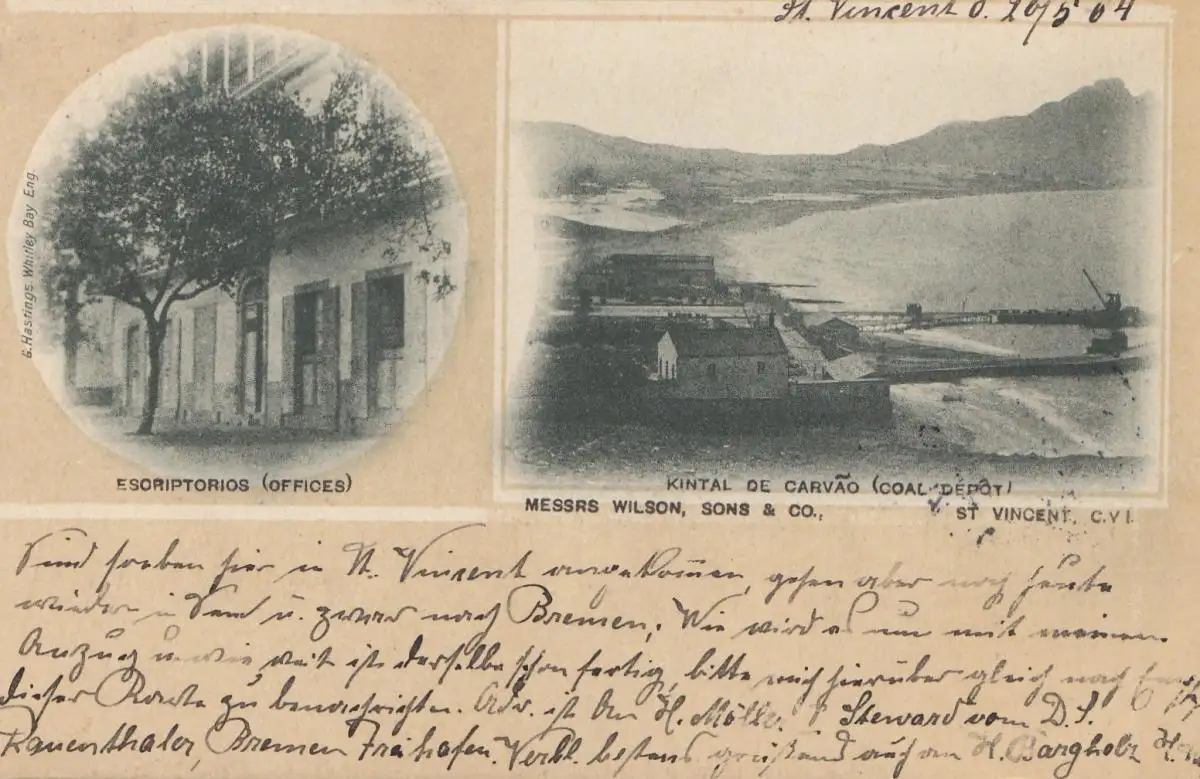 St. Vincent d. 20/5 04
G. Hastings. Whitley Bay Eng.
ESCRIPTORIOS (OFFICES)
KINTAL DE CARVÃO (COAL DEPÔT)
MESSRS WILSON, SONS & CO., ST VINCENT, C.V.I.
Sind soeben hier in St. Vincent angekom̄en, gehen aber noch heute
wieder in See u. zwar nach Bremen. Wie wird es nun mit meinem
Anzug u. wie weit ist derselbe schon fertig, bitte mich hierüber gleich nach
dieser Karte zu benachrichten. Adr. ist An H. Möller Steward vom D. S.
Rauenthaler, Bremen Freihafen. Verbl. bestens grüßend auch an H. Bargholz